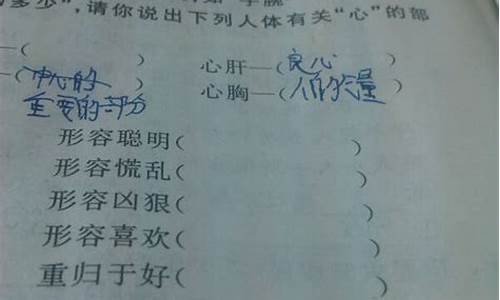 多少”,请你说出下列人体有关“心”的部
—( ) 心肝—(良心 )
—(中心的 ) 心胸—(人的气量)
重要的部分
形容聪明( )
形容慌乱( )
形容凶狠( )
形容喜欢( )
重归于好( )